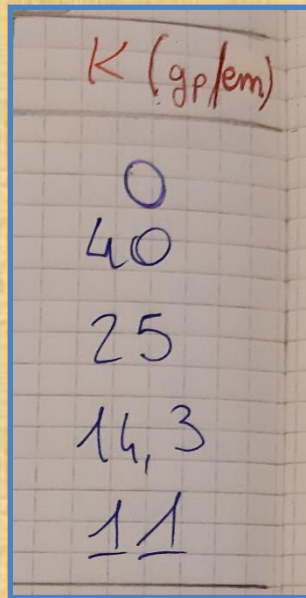 K (gp/em)
0
40
25
14,3
11